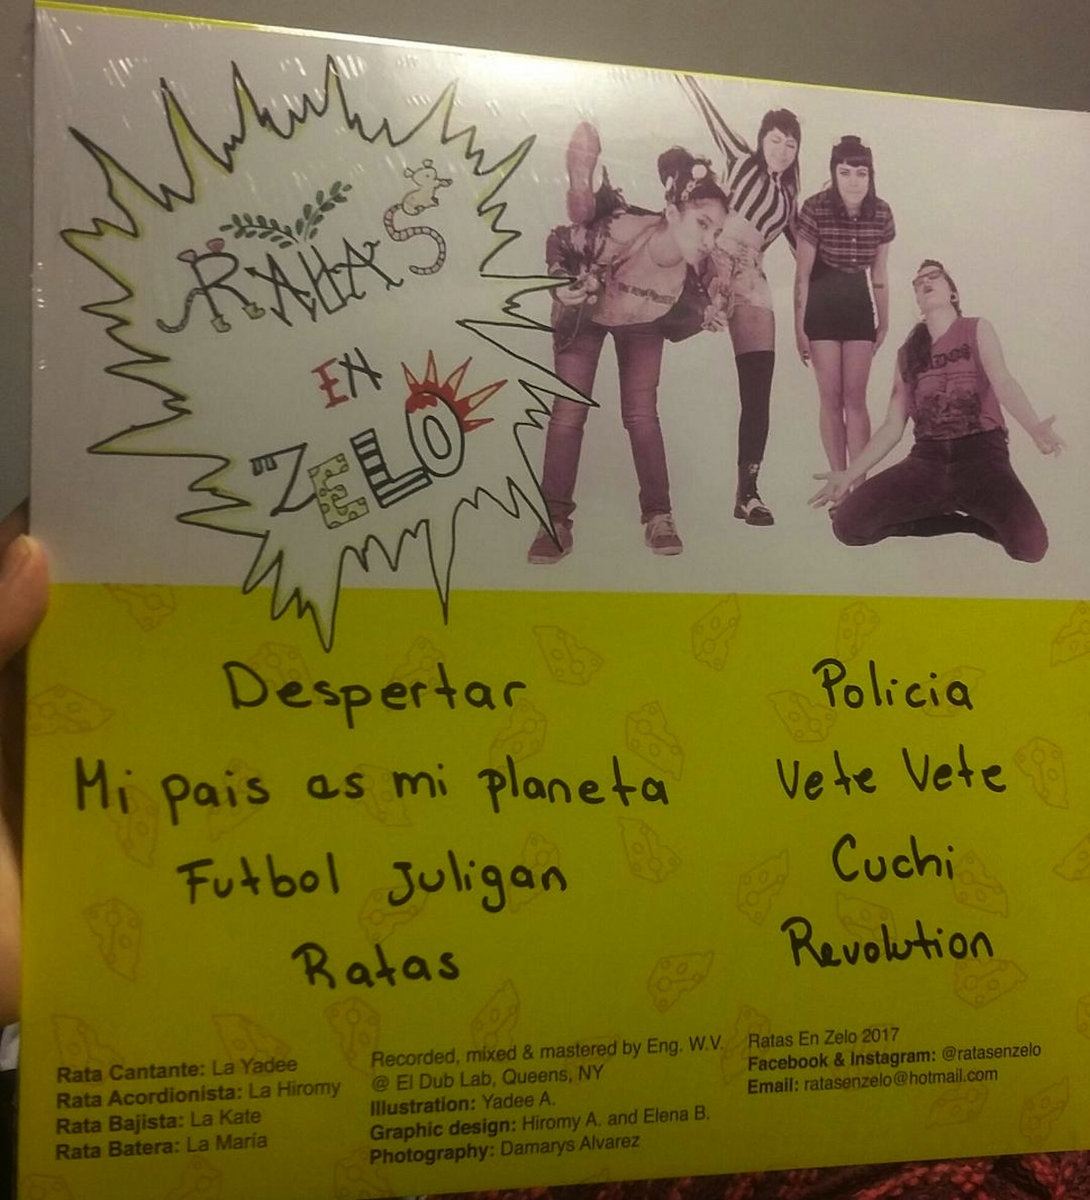 RATAS
EN
ZELO
Despertar
Mi pais es mi planeta
Futbol Juligan
Ratas
Policia
Vete Vete
Cuchi
Revolution
Rata Cantante: La Yadee
Rata Acordionista: La Hiromy
Rata Bajista: La Kate
Rata Batera: La María
Recorded, mixed & mastered by Eng. W.V.
@ El Dub Lab, Queens, NY
Illustration: Yadee A.
Graphic design: Hiromy A. and Elena B.
Photography: Damarys Alvarez
Ratas En Zelo 2017
Facebook & Instagram: @ratasenzelo
Email: ratasenzelo@hotmail.com